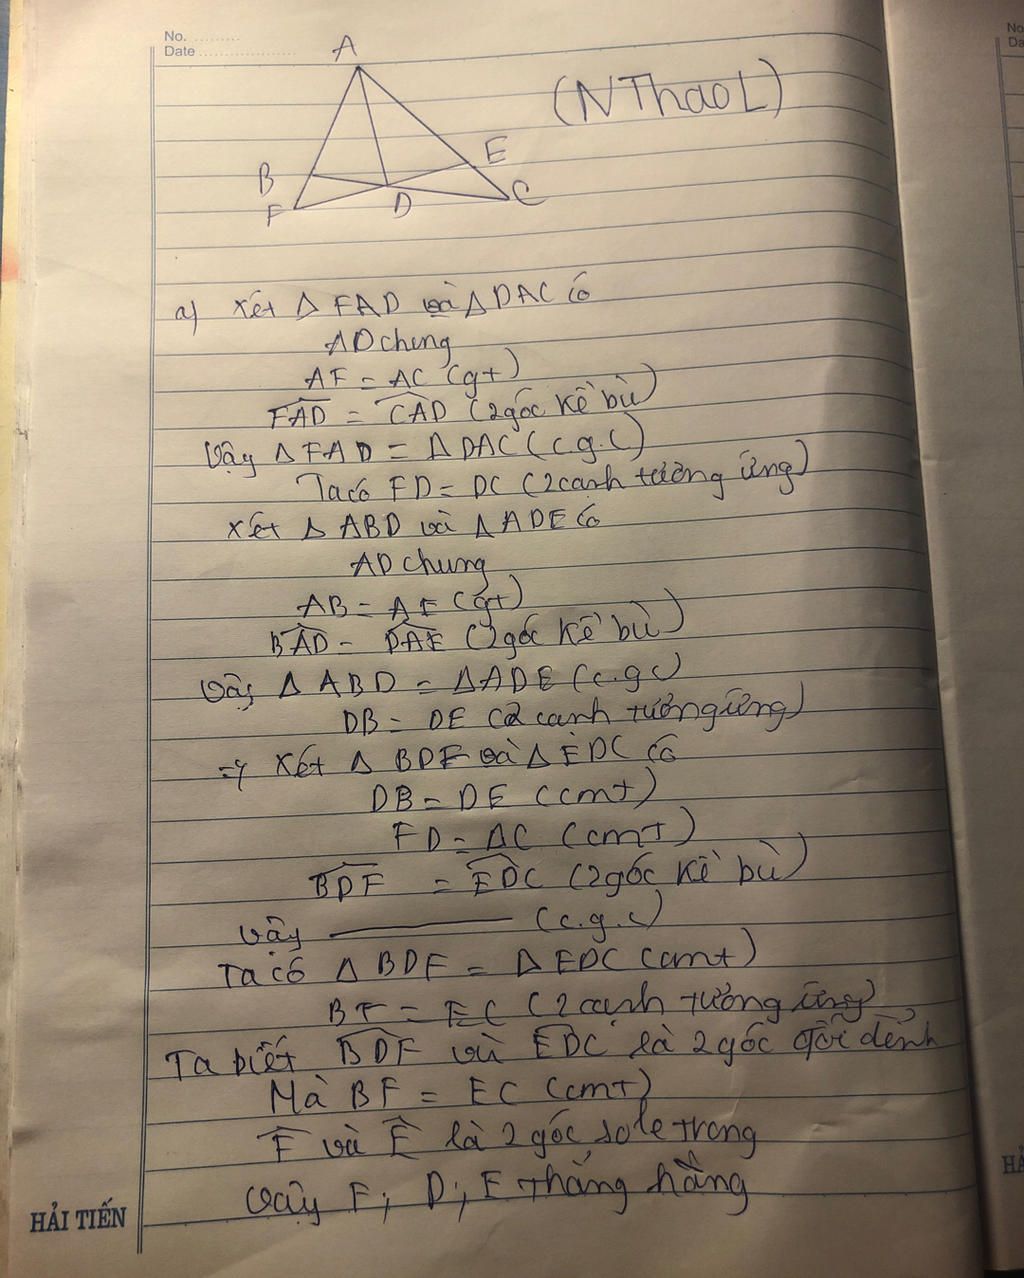 No. ..........
Date ....................
A
(NThaoL)
B
E
F
D
C
a) Xét Δ FAD và Δ DAC có
AD chung
AF = AC (gt)
FAD = CAD (2 góc kề bù)
Vậy Δ FAD = Δ DAC (c.g.c)
Ta có FD = DC (2 cạnh tương ứng)
Xét Δ ABD và Δ ADE có
AD chung
AB = AE (gt)
BAD = DAE (2 góc kề bù)
Vậy Δ ABD = Δ ADE (c.g.c)
DB = DE (2 cạnh tương ứng)
=> Xét Δ BDF và Δ EDC có
DB = DE (cmt)
FD = AC (cmt)
BDF = EDC (2 góc kề bù)
Vậy ———— (c.g.c)
Ta có Δ BDF = Δ EDC (cmt)
BF = EC (2 cạnh tương ứng)
Ta biết BDF và EDC là 2 góc đối đỉnh
Mà BF = EC (cmt)
F và E là 2 góc sole trong
Vậy F, D, E thẳng hằng
HẢI TIẾN
No
Da
HẢ